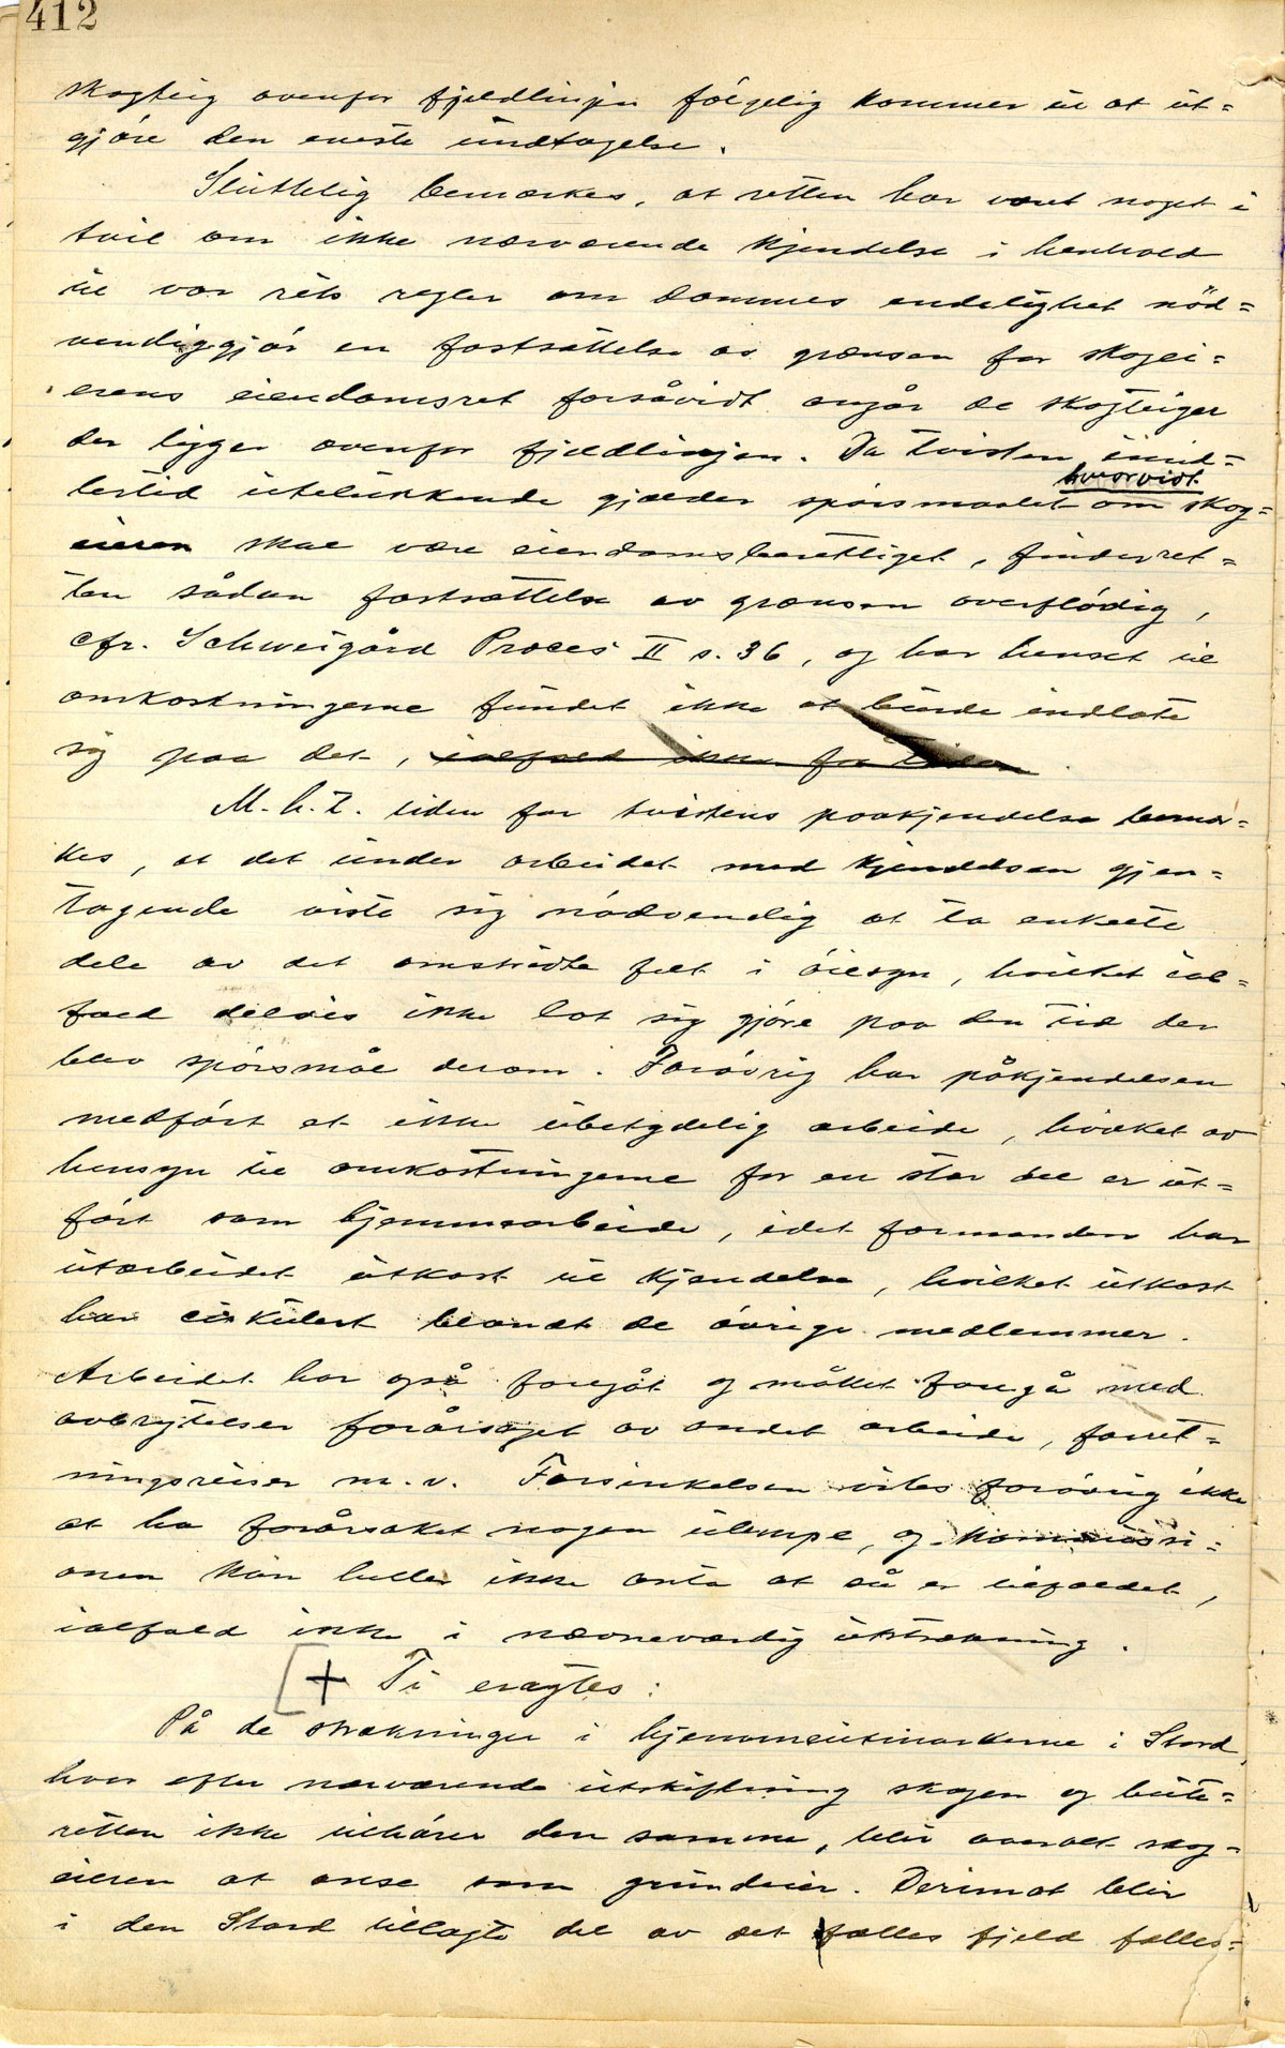 412
skogteig ovenfor fjeldlinjen følgelig kommer til at ut=
gjøre den eneste undtagelse.
Sluttelig bemærkes, at retten har været noget i
tvil om ikke nærværende kjendelse i henhold
til vor rets regler om dommes endelighet nød=
vendiggjør en fastsættelse av grænsen for skogei=
erens eiendomsret forsåvidt angår de skogteiger
der ligger ovenfor fjeldlinjen. Da tvisten imid=
lertid utelukkende gjælder spørsmaalet om hvorvidt skog=
eieren skal være eiendomsberettiget, finder ret=
ten sådan fastsættelse av grænsen overflødig,
cfr. Schweigård Proces II s. 36, og har henset til
omkostningerne fundet ikke at burde indlate
sig paa det, ialfald ikke for tiden.
M.h.t. tiden for tvistens paakjendelse bemær=
kes, at det under arbeidet med kjendelsen gjen=
tagende viste sig nødvendig at ta enkelte
dele av det omstridte felt i øiesyn, hvilket ial=
fald delvis ikke lot sig gjøre paa den tid der
blev spørsmål derom. Forøvrig har påkjendelsen
medført et ikke ubetydelig arbeide, hvilket av
hensyn til omkostningerne for en stor del er ut=
ført som hjemmearbeide, idet formanden har
utarbeidet utkast til kjendelse, hvilket utkast
har cirkulert blandt de øvrige medlemmer.
Arbeidet har også foregåt og måttet foregå med
avbrytelser forårsaget av andet arbeide, forret=
ningsreiser m.v. Forsinkelsen vites forøvrig ikke
at ha forårsaket nogen ulempe, og kommissi=
onen kan heller ikke anta at så er tilfældet,
ialfald ikke i nævneværdig utstrækning.
[+ Ti eragtes:
På de strækninger i hjemmeutmarkerne i Stord,
hvor efter nærværende utskiftning skogen og beite=
retten ikke tilhører den samme, blir overalt skog=
eieren at anse som grundeier. Derimot blir
i den Stord tillagte del av det fælles fjeld fælles=